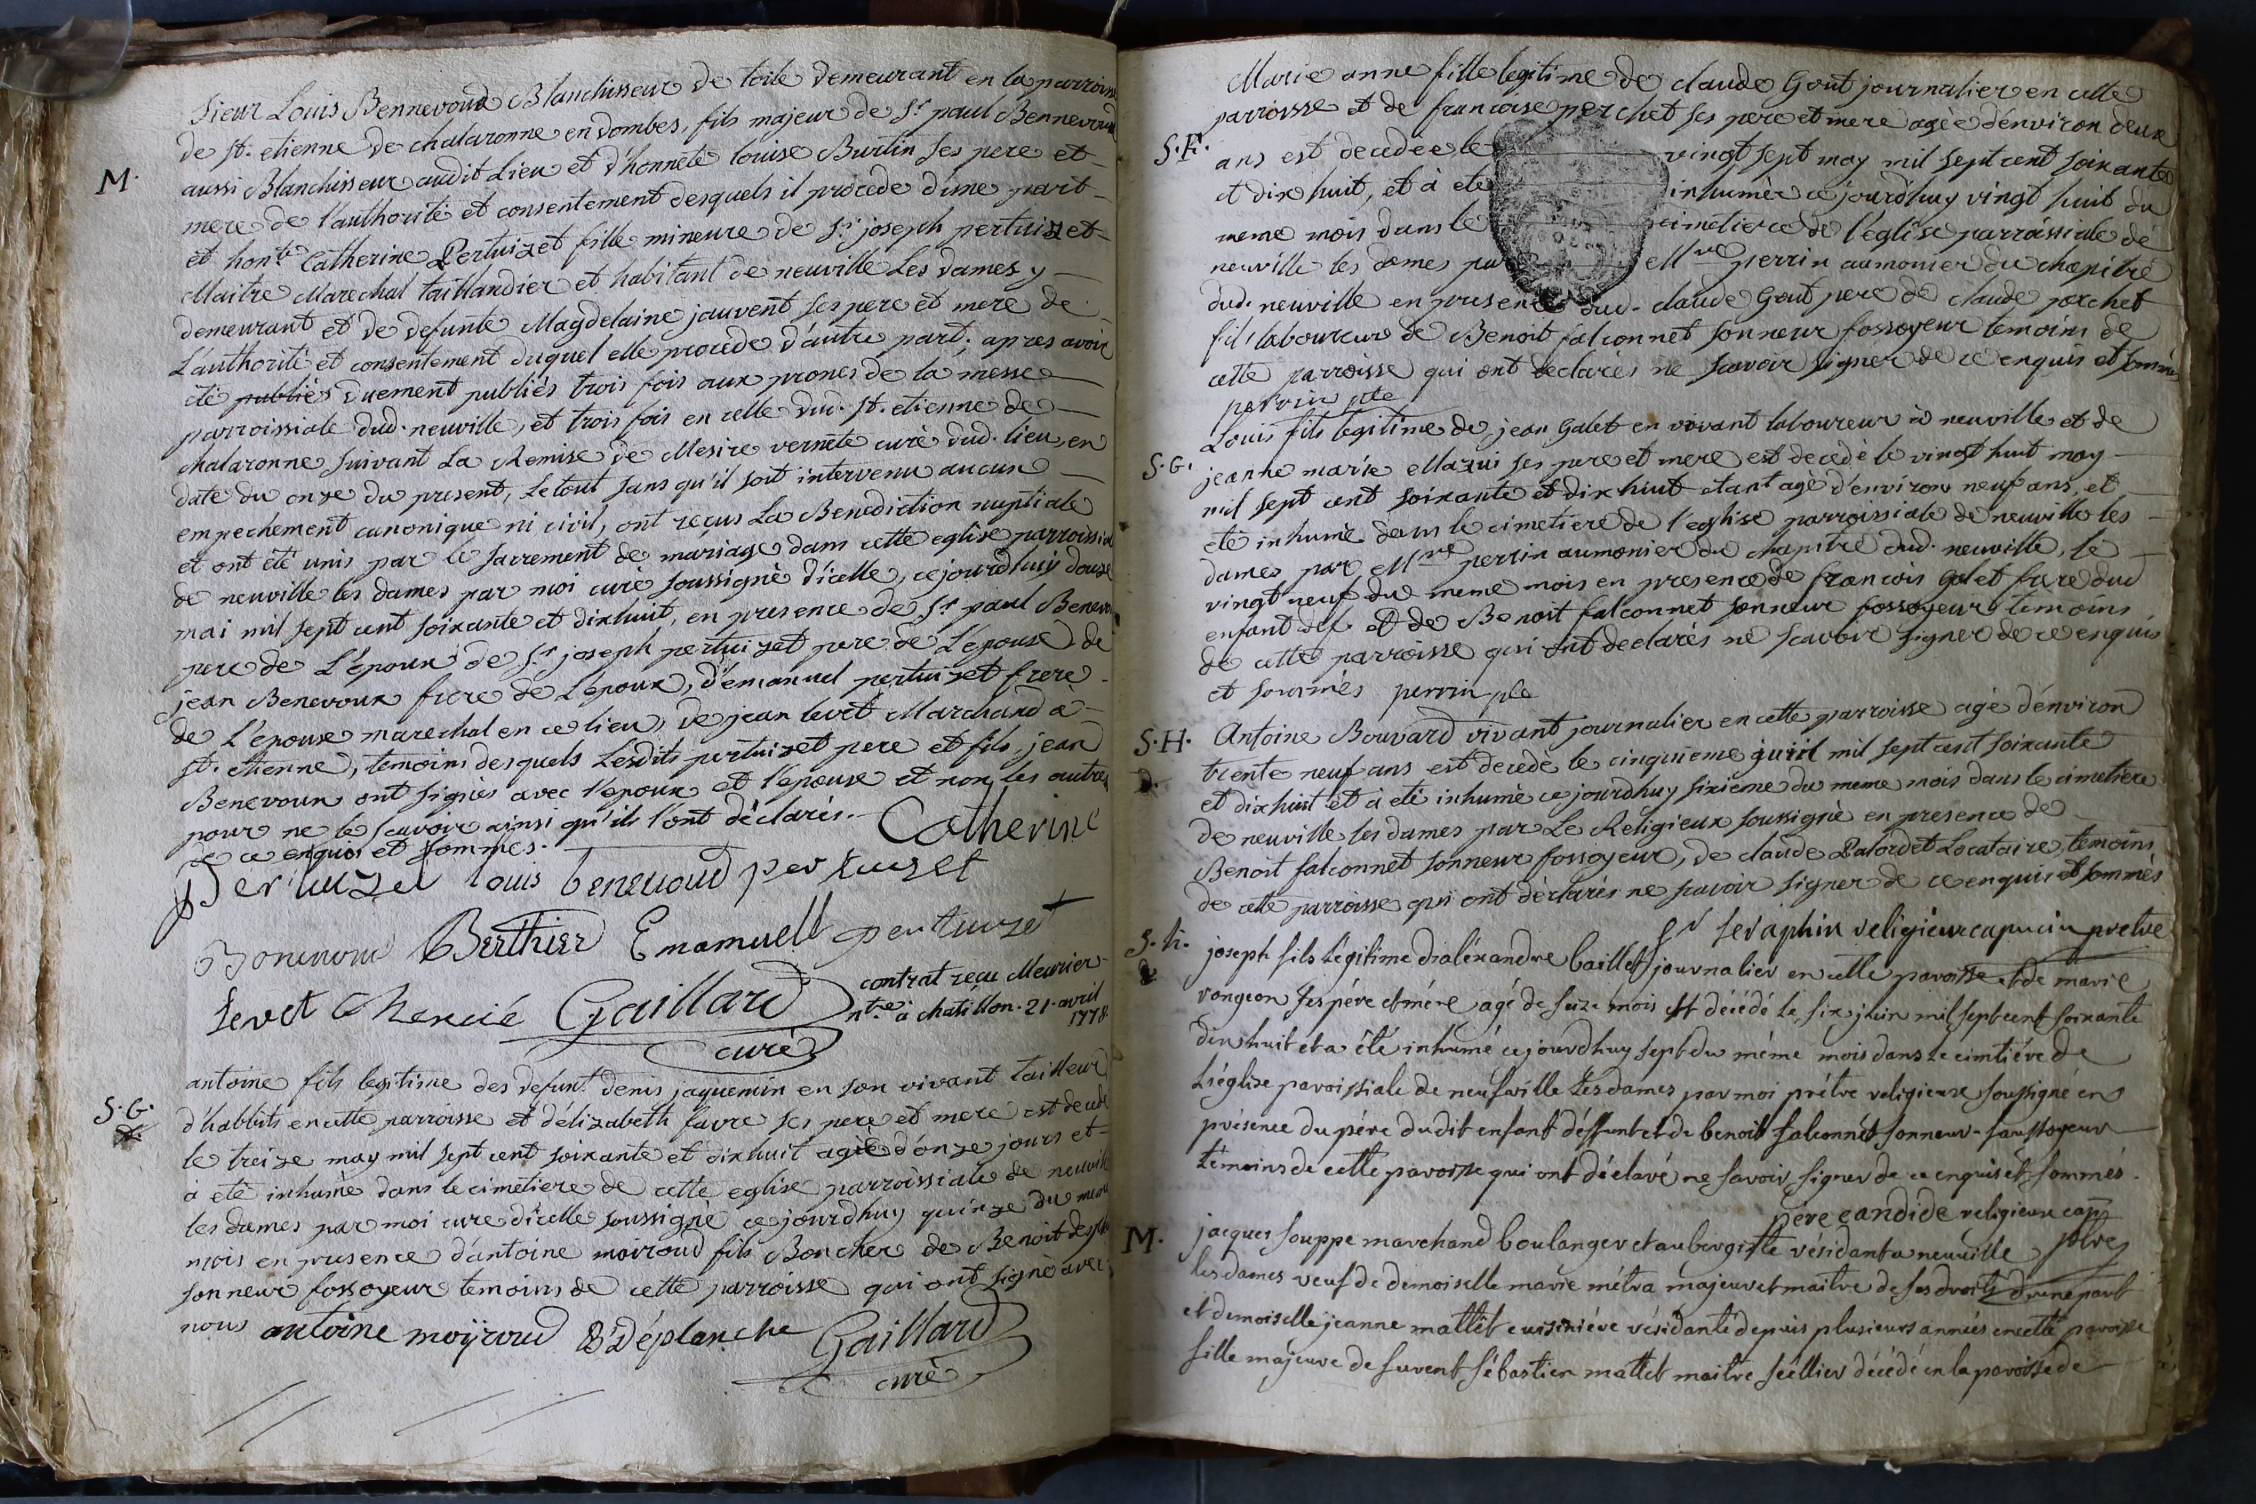 Sieur Louis Bennevoud Blanchisseur de toile demeurant en la parroisse
de St. etienne de chalaronne en dombes, fils majeur de Sr. paul Bennevoud
M.
aussi Blanchisseur audit Lieu et d'honnete louise Burtin ses pere et
mere de l'authorité et consentement desquels il procede d'une part
et honte. Catherine Pertuizet fille mineure de Sr. joseph pertuiszet
Maitre Marechal taillandier et habitant de neuville Les dames y
demeurant et de defunte Magdelaine jauvent ses pere et mere de
L'authorité et consentement duquel elle procede d'autre part; apres avoir
été publiés duement publiés trois fois aux prones de la messe
parroissiale dud. neuville, et trois fois en celle dud. St. etienne de
chalaronne suivant La Remise de Mesire vernete curé dud. lieu en
date du onze du present, Le tout sans qu'il soit intervenu aucun
empechement canonique ni civil, ont reçus La Benediction nuptiale
et ont été unis par le sacrement de mariage dans cette eglise parroissial
de neuville les dames par moi curé soussigné d'icelle, cejourd'huy douze
mai mil sept cent soixante et dixhuit, en presence de Sr. paul Benevo
pere de L'epoux de Sr. joseph pertuizet pere de L'epouse de
jean Benevoux frere de L'epoux, d'emanuel pertuizet frere
de L'epouse marechal en ce lieu, de jean levet Marchand à
St. etienne, temoins desquels Lesdits pertuizet pere et fils, jean
Benevoux ont signés avec l'epoux et l'epouse et non les autres
pour ne le scavoir ainsi qu'ils l'ont déclarés.
de ce enquis et sommés. Catherine
Pertuizet louis benevoud pertuizet
Berthier Emamuell pertuizet
Levet Gaillard
curé
contrat recu Meurier
ntre. à chatillon. 21. avril
1778.
S. G.
antoine fils legitime des defunt. denis jaquemin en son vivant tailleur
d'habbits en cette parroisse et d'élizabeth favre ses pere et mere est decedé
le treize may mil sept cent soixante et dixhuit agié d'onze jours et
à eté inhumé dans le cimetiere de cette eglise parroissiale de neuville
les dames par moi curé d'icelle soussigné ce jourd'huy quinze du meme
mois en presence d'antoine moiroud fils Boucher de Benoit
sonneur fossoyeur temoins de cette parroisse qui ont signé avec
nous antoine moÿroud B Déplanche Gaillard
curé
Marie anne fille legitime de claude Gout journalier en cette
parroisse et de francoise perchet ses pere et mere agée d'environ deux
S. F.
ans est decedee le vingt sept may mil sept cent soixante
et dix huit, et à ete inhumée ce jourd'huy vingt huit du
meme mois dans le cimetierce de l'eglise parroissiale de
neuville les dames par Mre. perrin aumonier du chapitre
dud. neuville en presence dud. claude Gout pere de claude perchet
fils laboureur de Benoit falconnet sonneur fossoyeur temoins de
cette parroisse qui ont declarés ne scavoir signer de ce enquis et sommés
perrin ptre
Louis fils legitime de jean Galet en vivant laboureur à neuville et de
S. G.
jeanne marie Mazui ses pere et mere est decedé le vingt huit may
mil sept cent soixante et dix huit etant agé d'environ neuf ans, et
eté inhumé dans le cimetiere de l'eglise parroissiale de neuville les
dames par Mre perrin aumonier du chapitre dud. neuville, le
vingt neuf du meme mois en presence de francois Galet frere dud
enfant def. et de Benoit falconnet sonneur fossoyeur temoins
de cette parroisse qui ont declarés ne scavoir signer de ce enquis
et sommés perrin ptre
S. H.
Antoine Bouvard vivant journalier en cette parroisse agé d'environ
trente neuf ans est decedé le cinquieme mil sept cent soixante
et dixhuit et à eté inhumé ce jourdhuy sixième du meme mois dans le cimetiere
de neuville les dames par Le Religieux soussigné en presence de
Benoit falconnet sonneur fossoyeur, de claude Palordet Locataire, temoins
de cette parroisse qui ont déclarés ne scavoir signer de ce enquis et sommés
seraphin religieux capucin pretre
S. h.
joseph fils légitime d'aléxandre baillet journalier en cette paroisse et de marie
vongeon ses pére et mére agé de seize mois est décédé le six juin mil sept cent soixante
dix huit et a été inhumé ce jourdhuy sept du même mois dans le cimtiére de
L'église paroissiale de neufville Les dames par moi prêtre religieux soussigné en
présence du pére dudit enfant déffunt et de benoit falconnét sonneur faussoyeur
témoins de cette paroisse qui ont déclaré ne savoir signer de ce enquis et sommés.
pere candide religieux cap
ptre
M.
jacques souppe marchand boulanger et aubergiste résidant a neuville
les dames veuf de demoiselle marie métra majeur et maitre de ses droits d'une part
et demoiselle jeanne mattét cuisiniére résidante depuis plusieurs années en cette paroisse
fille majeure de furent sébastien mattét maitre séellier décédé en la paroisse de